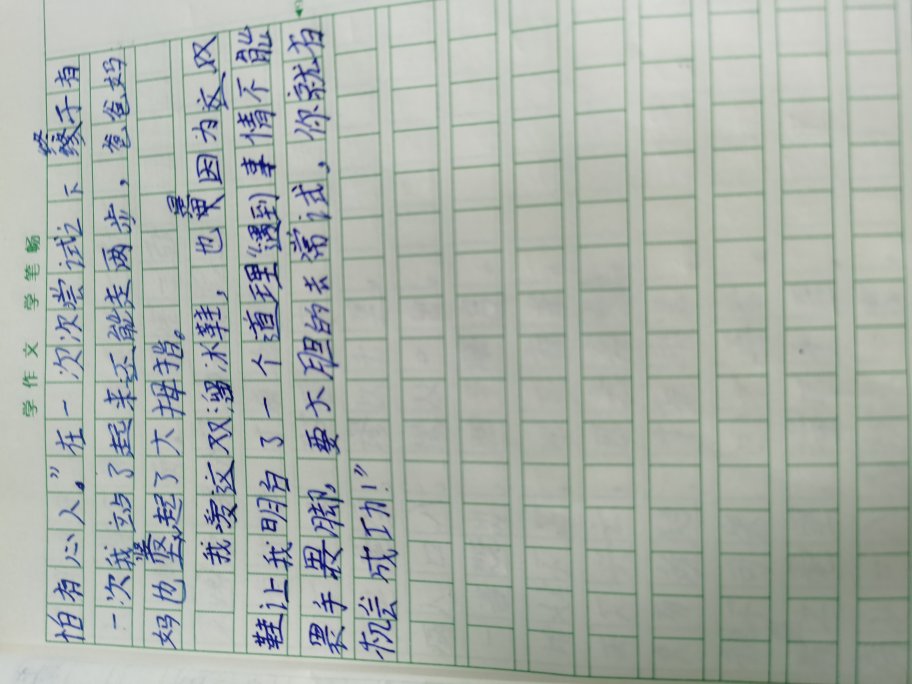 学作文 学笔畅
怕有心人。”在一次次尝试之下终于有
一次我站了起来还能走两步，爸爸妈
妈也竖起了大拇指。
我爱这双溜冰鞋，也因为这双
鞋让我明白了一个道理“遇到事情不能
畏手畏脚，要大胆的去尝试，你就有
机会成功！”